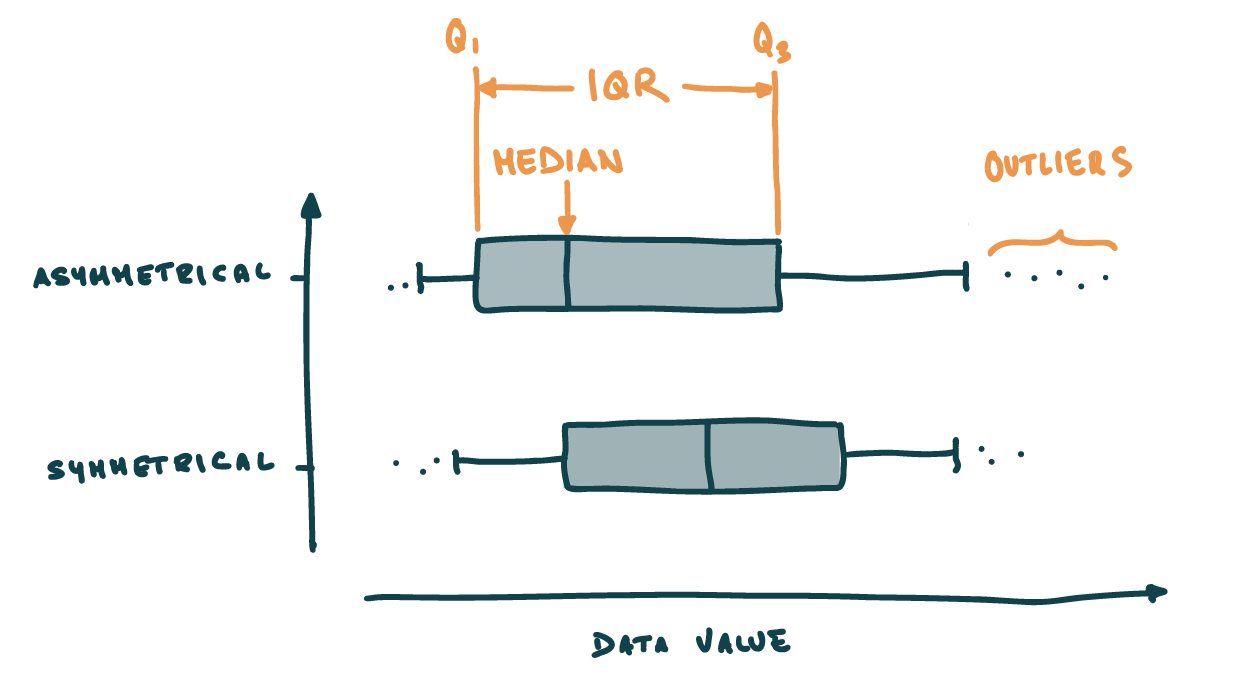 Q1
Q3
IQR
MEDIAN
OUTLIERS
ASYMMETRICAL
SYMMETRICAL
DATA VALUE